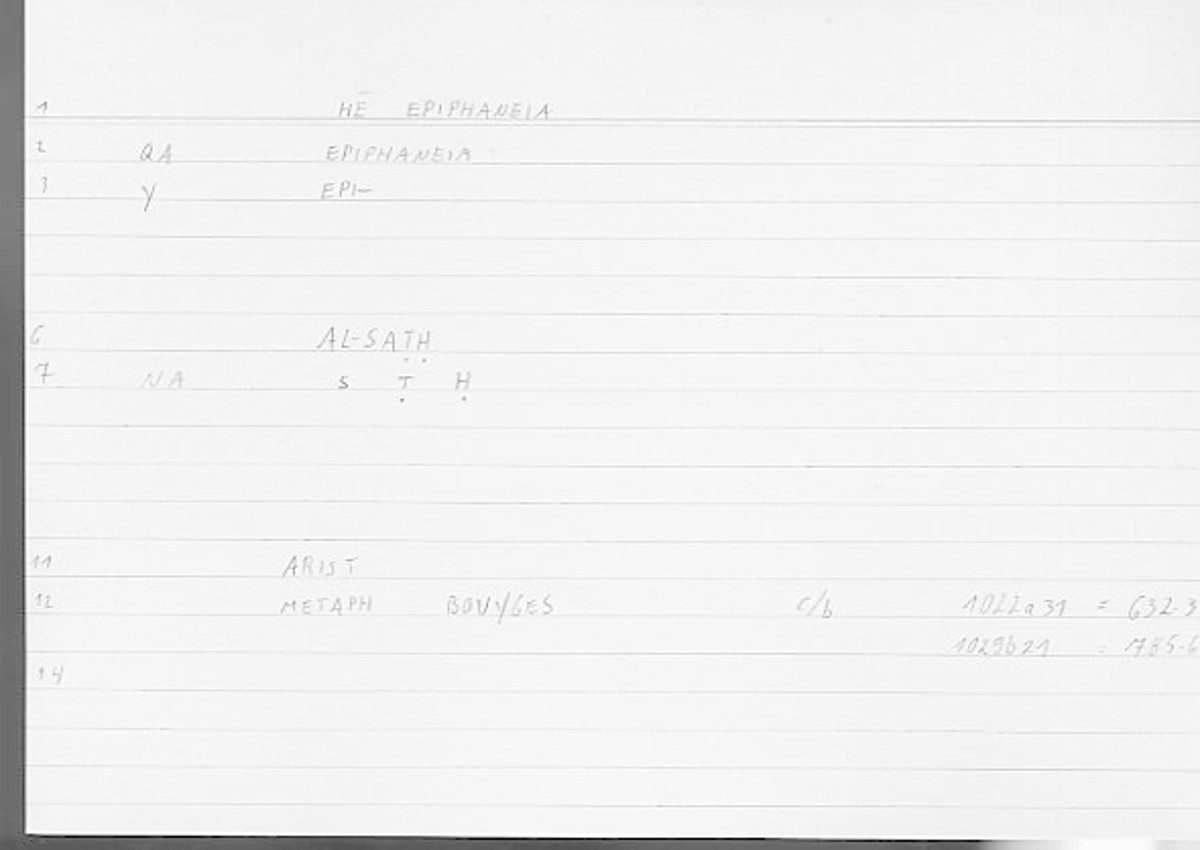 1 HĒ EPIPHANEIA
2 QA EPIPHANEIA
3 Y EPI-
6 AL-SAṬḤ
7 NA S Ṭ Ḥ
11 ARIST
12 METAPH BOUYGES c/b 1022a31 = 632-3
1029b21 = 785-6
14